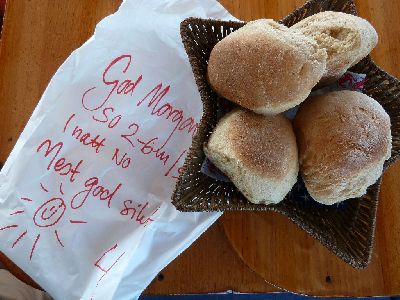 God Morgon
So 2-6 m/s
I natt No
Mest god sikt
4